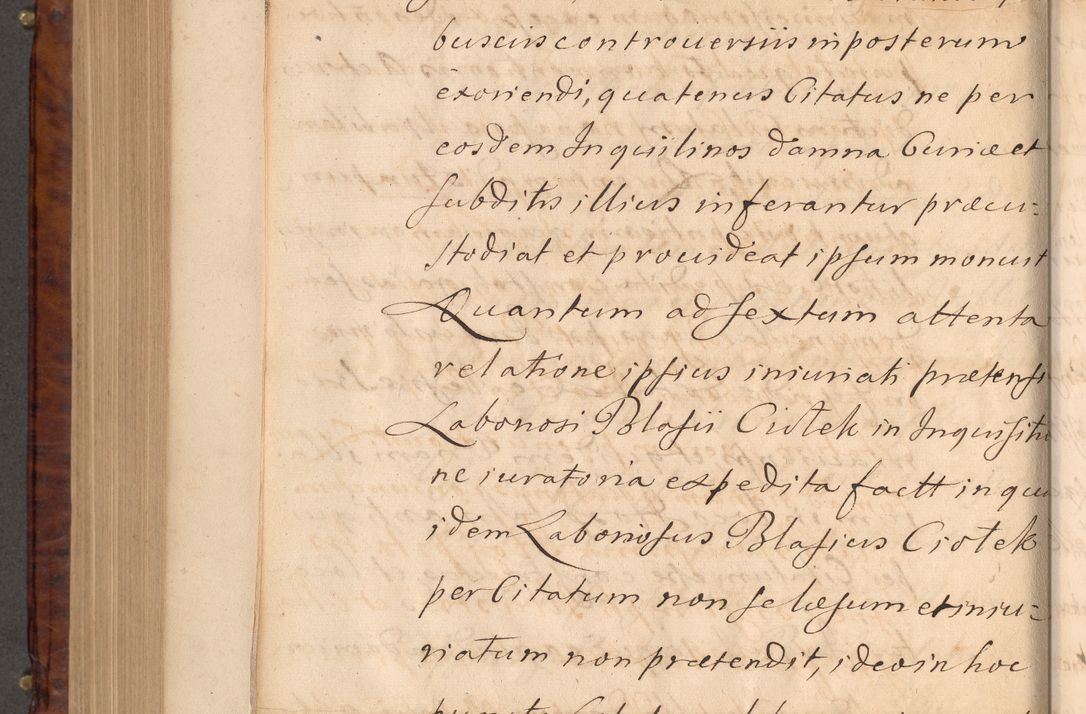 buscuis controuersiis in posterum
exoriendi, quatenus Citatus ne per
eosdem Inquilinos damna Curiæ et
subditis illius inferantur præcu=
stodiat et prouideat ipsum monuit
Quantum ad sextum attenta
relatione ipsius iniuriati prætensi
Laboriosi Blasii Ciołek in Inquisitio
ne iuratoria expedita factt in qua
idem Laboriosus Blasius Ciołek
per Citatum non se læsum et iniu=
riatum non prætendit, ideo in hoc